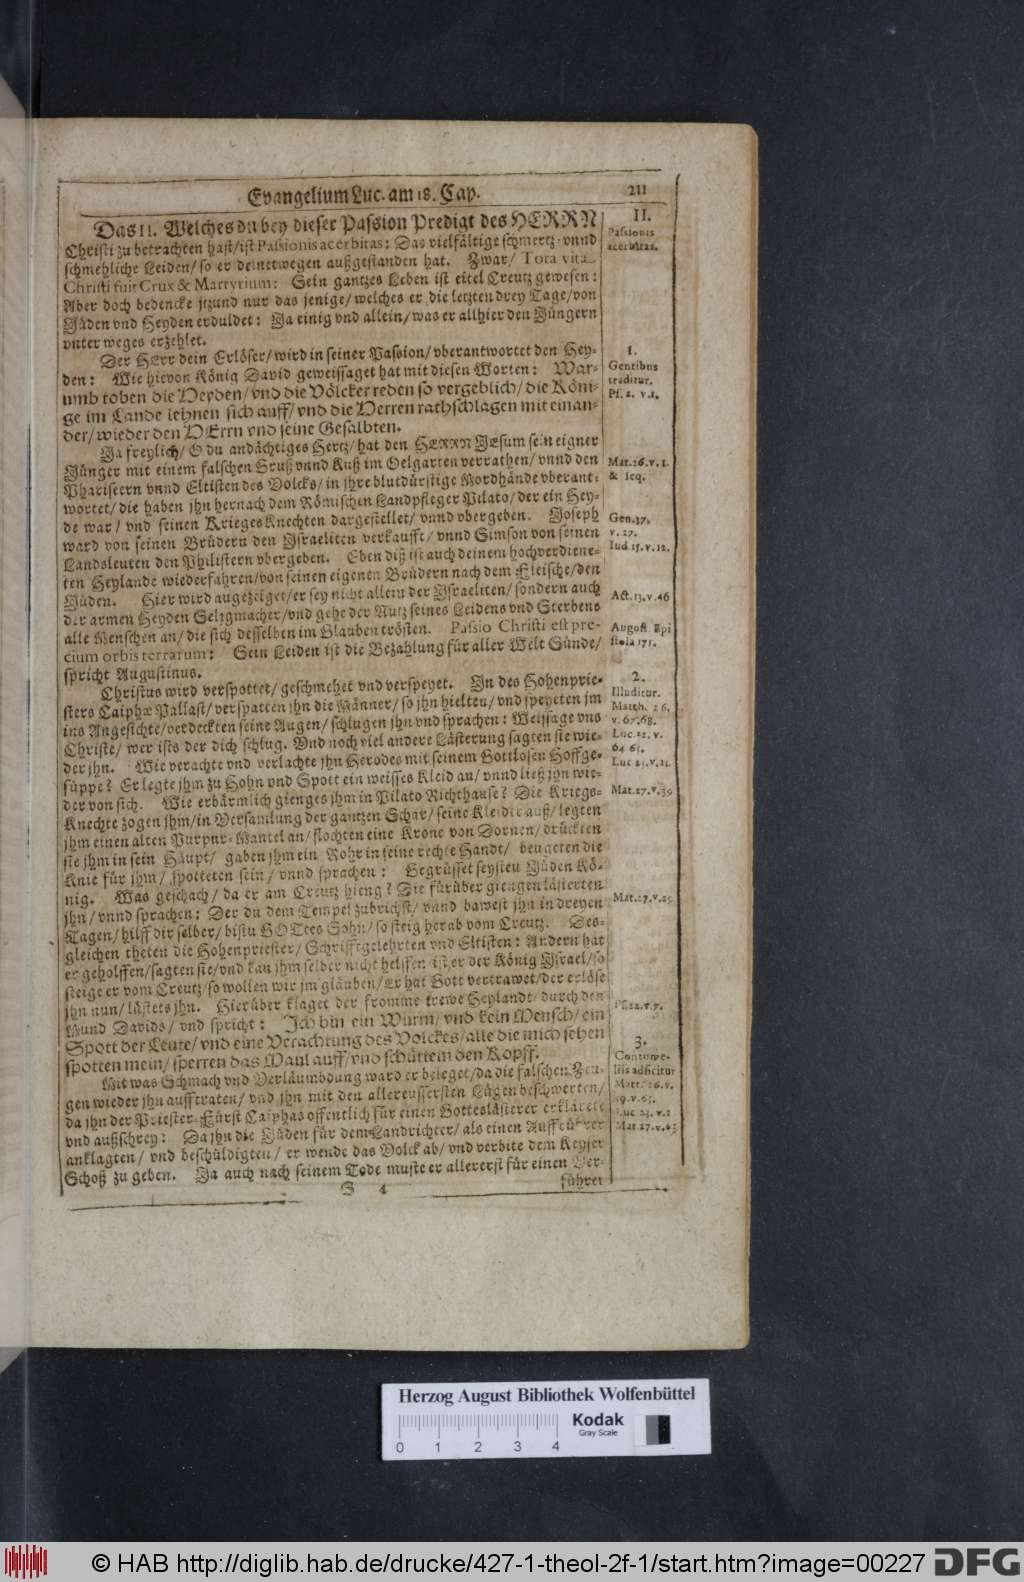 Evangelium Luc. am 18. Cap.
211
Das II. Welches du bey dieser Passion Predigt des HERRN
Christi zu betrachten hast/ist Passionis acerbitas: Das vielfältige schmertz-vnnd
schmehliche Leiden/so er deinetwegen außgestanden hat. Zwar/ Tota vita
Christi fuit Crux & Martyrium: Sein gantzes Leben ist eitel Creutz gewesen:
Aber doch bedencke itzund nur das jenige/welches er die letzten drey Tage/von
Jüden vnd Heyden erduldet: Ja einig vnd allein/was er allhier den Jüngern
vnter weges erzehlet.
Der HErr dein Erlöser/wird in seiner Passion/vberantwortet den Hey-
den: Wie hievon König David geweissaget hat mit diesen Worten: War-
umb toben die Heyden/vnd die Völcker reden so vergeblich/die Köni-
ge im Lande lehnen sich auff/vnd die Herren rathschlagen mit einan-
der/wieder den HErrn vnd seine Gesalbten.
Ja freylich/O du andächtiges Hertz/hat den HERRN JEsum sein eigner
Jünger mit einem falschen Gruß vnnd Kuß im Oelgarten verrathen/vnnd den
Phariseern vnnd Eltisten des Volcks/in jhre blutdürstige Mordhände vberant-
wortet/die haben jhn hernach dem Römischen Landpfleger Pilato/der ein Hey-
de war/ vnd seinen Krieges Knechten dargestellet/ vnnd vbergeben. Joseph
ward von seinen Brüdern den Israeliten verkaufft/ vnnd Simson von seinen
Landsleuten den Philistern vbergeben. Eben diß ist auch deinem hochverdiene-
ten Heylande wiederfahren/von seinen eigenen Brüdern nach dem Fleische/den
Jüden. Hier wird angezeiget/er sey nicht allein der Israeliten/sondern auch
der armen Heyden Seligmacher/vnd gehe der Nutz seines Leidens vnd Sterbens
alle Menschen an/die sich desselben im Glauben trösten. Passio Christi est pre-
cium orbis terrarum: Sein Leiden ist die Bezahlung für aller Welt Sünde/
spricht Augustinus.
Christus wird verspottet/geschmehet vnd verspeyet. In des Hohenprie-
sters Caiphæ Pallast/verspotten jhn die Männer/so jhn hielten/vnd speyeten jm
ins Angesichte/verdeckten seine Augen/schlugen jhn vnd sprachen: Weissage vns
Christe/ wer ists der dich schlug. Vnd noch viel andere Lästerung sagten sie wie-
der jhn. Wie verachte vnd verlachte jhn Herodes mit seinem Gottlosen Hoffge-
süppe? Er legte jhm zu Hohn vnd Spott ein weisses Kleid an/vnnd ließ jhn wie-
der von sich. Wie erbärmlich gienges jhm in Pilato Richthause? Die Kriegs-
Knechte zogen jhm/in Versamlung der gantzen Schar/seine Kleider auß/legten
jhm einen alten Purpur-Mantel an/flochten eine Krone von Dornen/drückten
sie jhm in sein Häupt/ gaben jhm ein Rohr in seine rechte Handt/ beugeten die
Knie für jhm/ spotteten sein/ vnnd sprachen: Gegrüsset seystu Jüden Kö-
nig. Was geschach/ da er am Creutz hieng? Die fürüber giengen lästerten
jhn/vnnd sprachen: Der du den Tempel zubrichst/ vnnd bawest jhn in dreyen
Tagen/hilff dir selber/bistu GOttes Sohn/so steig herab vom Creutz. Des-
gleichen theten die Hohenpriester/Schrifftgelehrten vnd Eltisten: Andern hat
er geholffen/sagten sie/vnd kan jhm selber nicht helffen ist er der König Israel/so
steige er vom Creutz/so wollen wir jm gläuben/Er hat Gott vertrawet/der erlöse
jhn nun/lüstets jhn. Hierüber klaget der fromme trewe Heylandt/durch den
Mund Davids/ vnd spricht: Ich bin ein Wurm/vnd kein Mensch/ein
Spott der Leute/ vnd eine Verachtung des Volckes/alle die mich sehen
spotten mein/ sperren das Maul auff/vnd schütteln den Kopff.
Mit was Schmach vnd Verläumbdung ward er beleget/da die falschen Zeu-
gen wieder jhn aufftraten/ vnd jhn mit den allereussersten Lügen beschwerten/
da jhn der Priester-Fürst Caiphas offentlich für einen Gotteslästerer erklärete
vnd außschrey: Da jhn die Jüden für dem Landrichter/als einen Auffrührer
anklagten/ vnd beschüldigten/ er wende das Volck ab/ vnd verbite dem Keyser
Schoß zu geben. Ja auch nach seinem Tode muste er allererst für einen Ver-
S 4
führer
II.
Passionis
acerbitas.
1.
Gentibus
traditur.
Ps. 2. v.1.
Mat. 26. v. 1.
& seq.
Gen. 37.
v. 27.
Iud. 15. v. 12.
Act. 13. v. 46
August Epi
stola 171.
2.
Illuditur.
Matth. 26,
v. 67. 68.
Luc. 22. v.
64 65.
Luc 23. v. 11.
Mat. 27. v. 39
Mat. 27. v. 29
Ps. 22. v. 7.
3.
Contume-
liis adficitur
Matt. 26. v.
59. v. 65.
Luc 23. v. 2
Mat. 27. v. 63
Herzog August Bibliothek Wolfenbüttel
Kodak
Gray Scale
0 1 2 3 4
© HAB http://diglib.hab.de/drucke/427-1-theol-2f-1/start.htm?image=00227
DFG